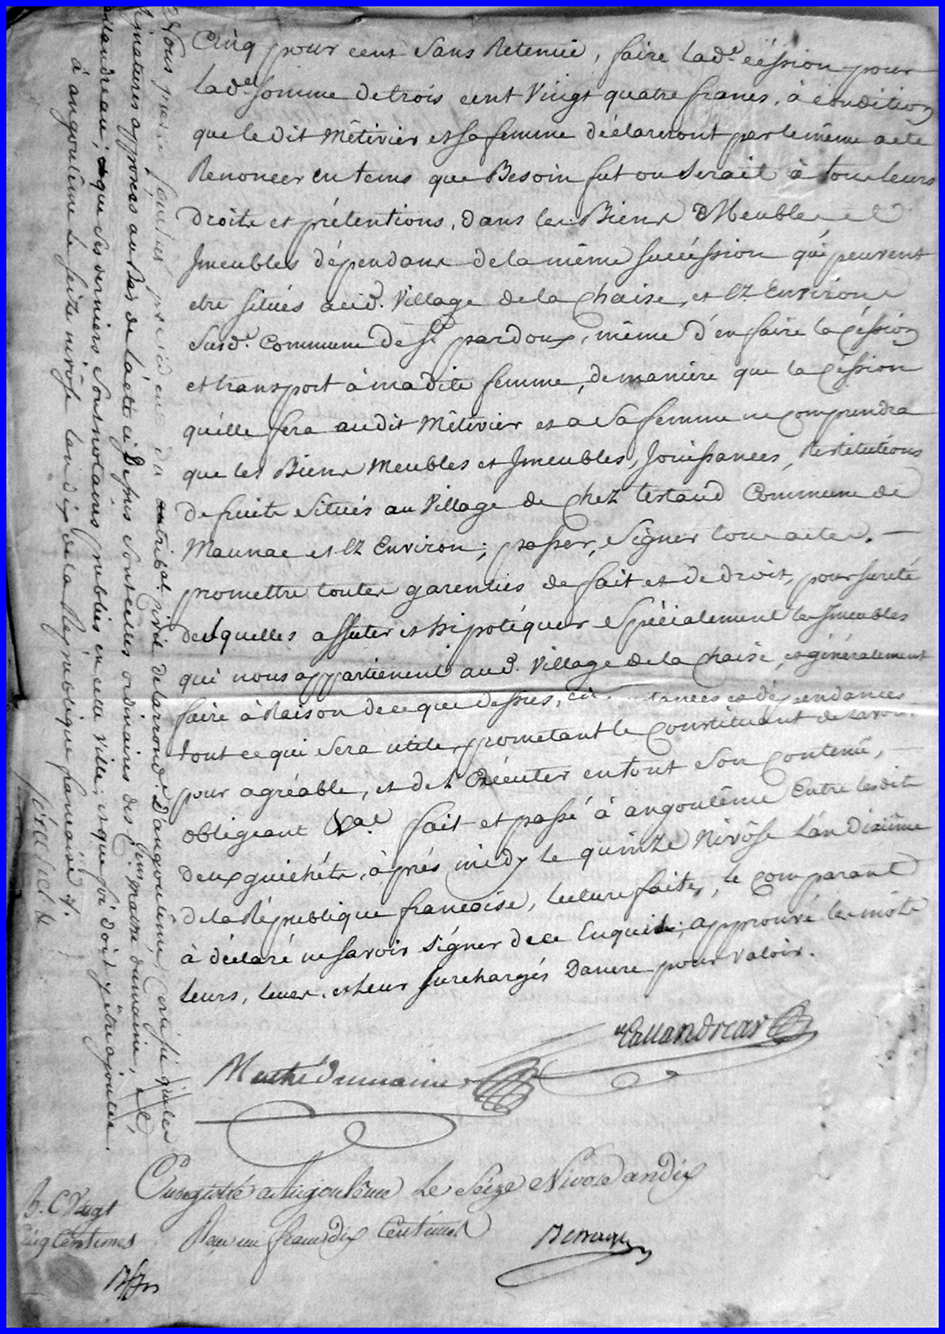 Cinq pour cent sans Retenüe, faire lad.e céssion pour
lad.e somme de trois cent Vingt quatre francs, à condition
que le dit Métivier et sa femme déclareront par le même acte
Renoncer en tems que Besoin fut ou serait à tous leurs
Droits et prétentions, dans les Biens Meubles et
Jmeubles dépendans de la même succéssion qui peuvent
etre situés aud. Village de la Chaise, et Ez Environs
susd. Commune de St. pardoux, même d'en faire la Céssion
et transport à madite femme, de manière que la Céssion
qu'elle fera audit Métivier et a sa femme ne comprendra
que les Biens Meubles et Jmeubles, Jouissances, Restitutions
de fruits situés au Village de chez testaud Commune de
Maunac et Ez Environ; passer, signer tous actes. —
promettre toutes garenties de fait et de droit, pour sureté
desquelles affecter et hipotéquer espécialement les Jmeubles
qui nous appartienent aud. Village de la Chaise, et généralement
faire à Raison de ce que dessus, circonstances et dépendances
tout ce qui sera utile, prometant le Constituant de l'avoir
pour agréable, et de l'Exécuter en tout son contenu, —
obligeant &a. fait et passé à angoulême Entre les dit
deux guichéts, à prés midy le quinze Nivôse L'an Dixiéme
de la République francaise, lecture faite, le Comparant
à déclaré ne savoir signer de ce Enquis; approuvé les mots
leurs, leurs, et leur surchargés Dancre pour valoir.
Callandreau
Mathé Dumaine
Enregistré a Angoulême Le Seize Nivose an dix
Reçu un franc dix Centimes
R. C Vingt
cinq Centimes
Nous
président du tribal. civil de larrond.t D'angoulême, Certifie qu'les
signatures apposées au Bas de l'acte ci Dessus sont celles ordinaires des Cens mathé dumaine, et
Callandreau; que ses derniers sont notaires publics en cette Ville; et que foi doit y être ajoutée.
à angoulême le seize nivôse lan dix de la République francaise